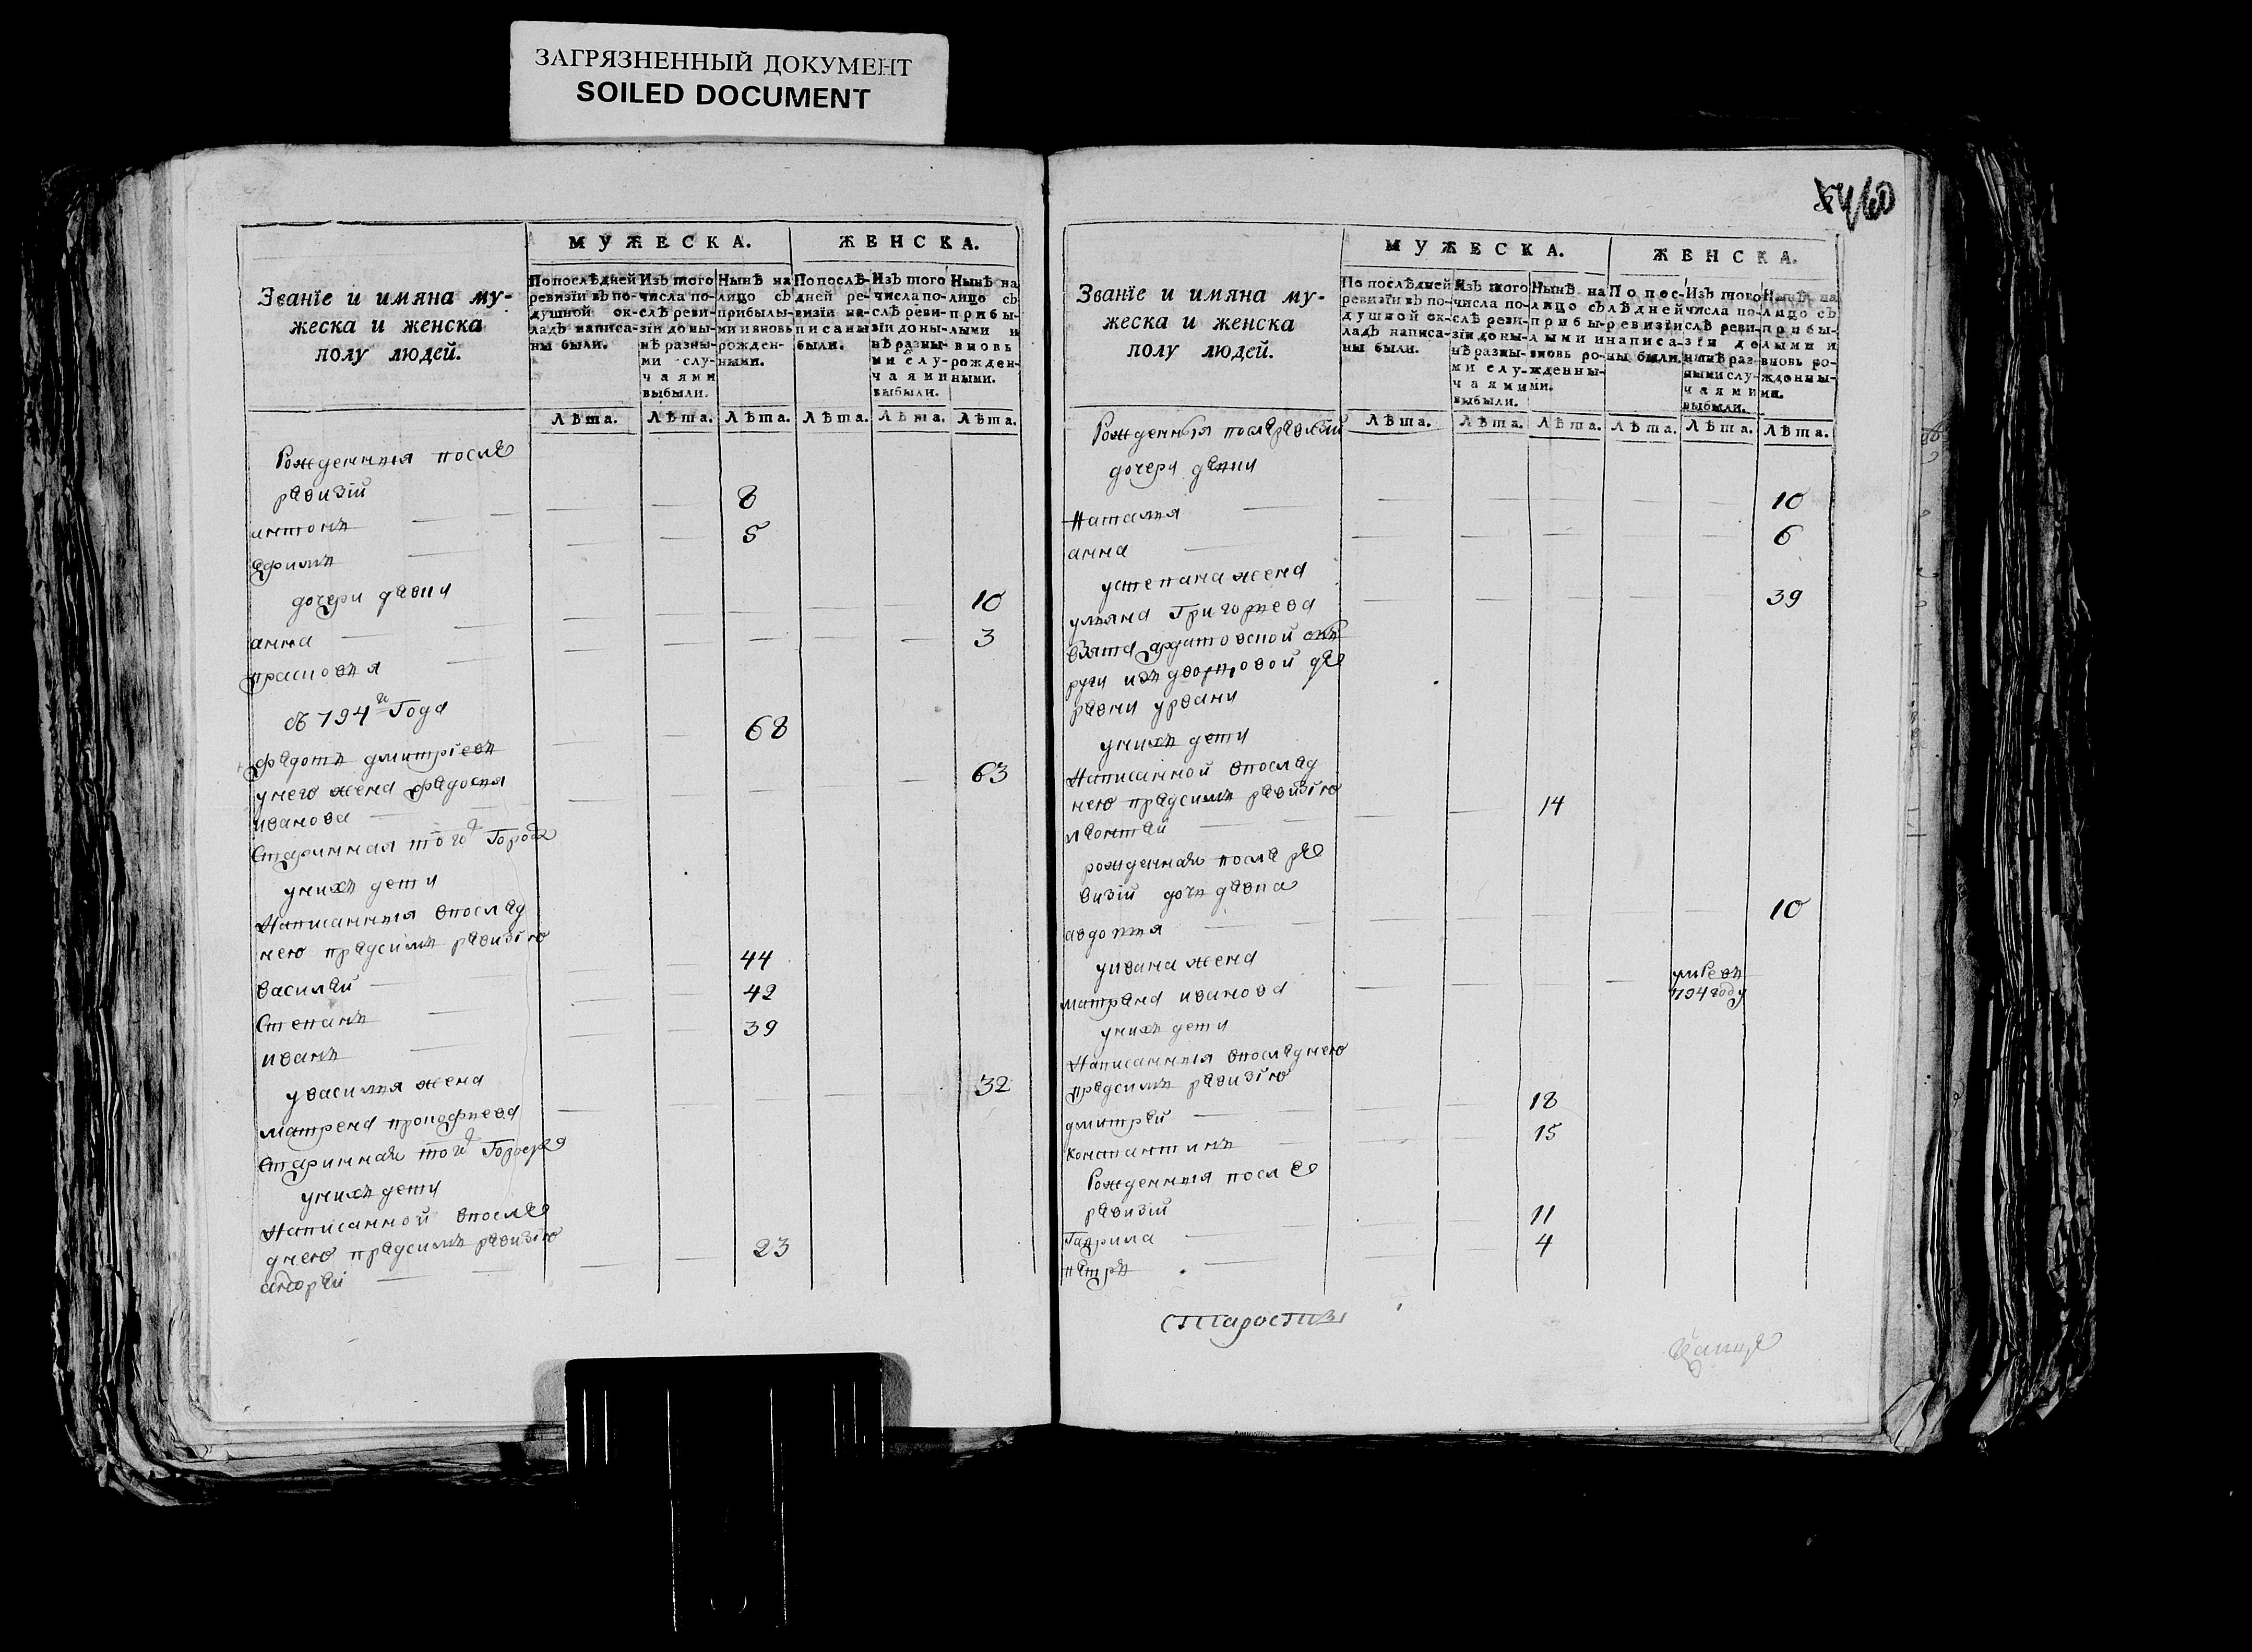 ЗАГРЯЗНЕННЫЙ ДОКУМЕНТ
SOILED DOCUMENT
Званїе и имяна му-
жеска и женска
полу людей.
МУЖЕСКА.
ЖЕНСКА.
По послѣдней ревизїи въ по-душной ок-ладъ написа-ны были.
Изъ того числа по-слѣ реви-зїи до ны-нѣ разны-ми слу-чаями выбыли.
Нынѣ на лицо съ прибылы-ми и вновь рожден-ными.
По послѣ-дней ре-визїи на-писаны были.
Изъ того числа по-слѣ реви-зїи до ны-нѣ разны-ми слу-чаями выбыли.
Нынѣ на лицо съ прибы-лыми и вновь рожден-ными.
Лѣта. Лѣта. Лѣта. Лѣта. Лѣта. Лѣта.
Рожденныя после
ревизїй
антонъ 8
ефимъ 5
дочери девки
анна 10
прасковья 3
съ 794го Года
федотъ дмитрїевъ 68
у него жена федосья 63
иванова
Старинная того Города
у нихъ дети
Написанныя впослед
нею предсимъ ревизїю
василей 44
Степанъ 42
иванъ 39
у василья жена
матрена прокофьева 32
Старинная того
у нихъ дети
Написанной впосле
днею предсимъ ревизїю
андрей 23
460
Званїе и имяна му-
жеска и женска
полу людей.
МУЖЕСКА.
ЖЕНСКА.
По послѣдней ревизїи въ по-душной ок-ладъ написа-ны были.
Изъ того числа по-слѣ реви-зїи до ны-нѣ разны-ми слу-чаями выбыли.
Нынѣ на лицо съ прибы-лыми и вновь ро-жденны-ми.
По пос-лѣдней ревизїи написа-ны были.
Изъ того числа по-слѣ реви-зїи до нынѣ раз-ными слу-чаями выбыли.
Нынѣ на лицо съ прибы-лыми и вновь ро-жденны-ми.
Лѣта. Лѣта. Лѣта. Лѣта. Лѣта. Лѣта.
Рожденныя послеревизїй
дочери девки
Наталья 10
анна 6
у степана жена
ульяна Григорьева 39
взята ардатовской ок
руги изъ дворцовой де
ревни
у нихъ дети
Написанной впослед
нею предсимъ ревизїю
леонтей 14
рожденная после ре
визїй дочь девка
авдотья 10
у ивана жена
матрена иванова умре въ 794 году
у нихъ дети
Написанныя впоследнею
предсимъ ревизїю
дмитрей 18
константинъ 15
Рожденныя после
ревизїй
Гаврила 11
петръ 4